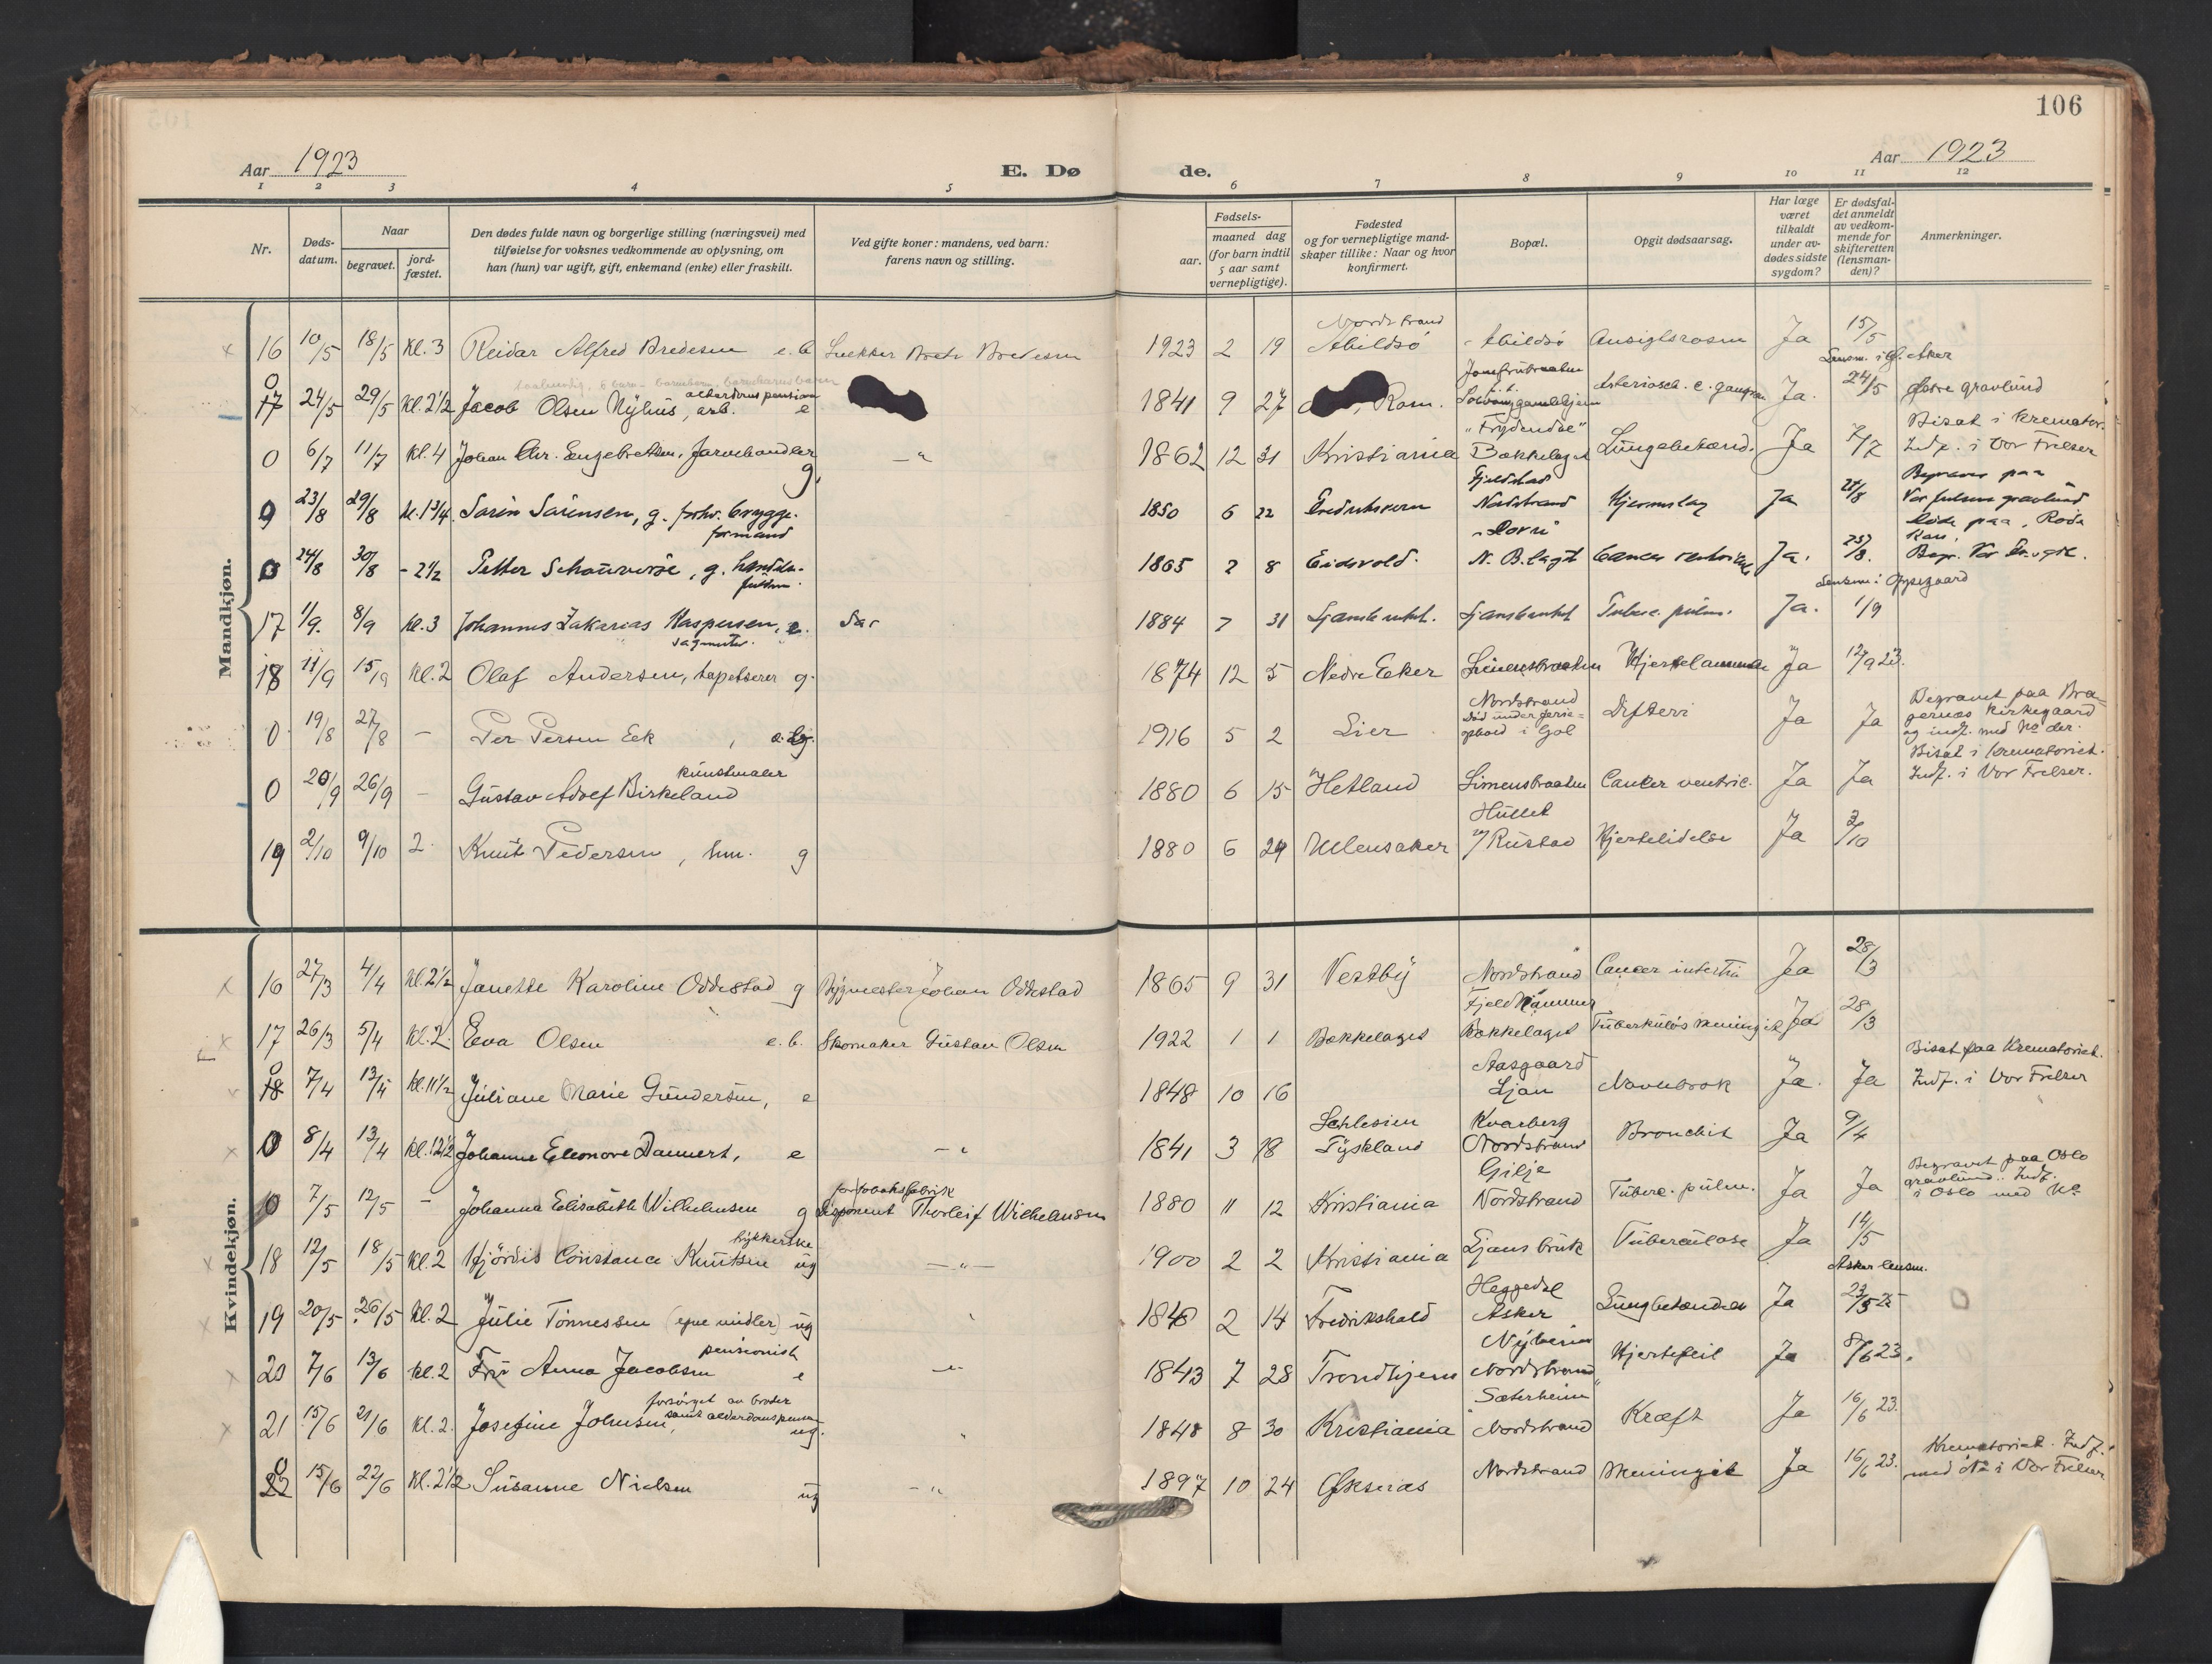 106
Aar 1923
E. Dø
de.
Aar 1923
1 2 3 4 5 6 7 8 9 10 11 12
Nr.
Døds-
datum.
Naar
begravet.
jord-
fæstet.
Den dødes fulde navn og borgerlige stilling (næringsvei) med
tilføielse for voksnes vedkommende av oplysning, om
han (hun) var ugift, gift, enkemand (enke) eller fraskilt.
Ved gifte koner: mandens, ved barn:
farens navn og stilling.
Fødsels-
aar.
maaned dag
(for barn indtil
5 aar samt
vernepligtige).
Fødested
og for vernepligtige mand-
skaper tillike: Naar og hvor
konfirmert.
Bopæl.
Opgit dødsaarsag.
Har læge
været
tilkaldt
under av-
dødes sidste
sygdom?
Er dødsfal-
det anmeldt
av vedkom-
mende for
skifteretten
(lensman-
den)?
Anmerkninger.
Mandkjøn.
Nordstrand
16 10/5 18/5 Kl. 3 Reidar Alfred Bredesen e. b. Snekker Bredesen 1923 2 19 Abildsø Abildsø Ja 15/5
Lensm. i Ø. Aker
alderdomspension
0 17 24/5 29/5 Kl. 2½ Jacob Olsen Nyhus, arb. e 1841 9 27 Rom. Ja. 24/5 Østre gravlund
"Frydendal"
0 6/7 11/7 Kl. 4 Johan Chr. Engebretsen, farvehandler g. 1862 12 31 Kristiania Bækkelaget Lungebetænd. Ja 7/7 Bisat i Kremator.
Indf. i Vor Frelser
Fjeldstad
0 23/8 29/8 kl. 1 3/4 Sørin Sørensen, g. forhv. brygge-
formand 1850 6 22 Fredriksvern Nordstrand Hjerneslag Ja Begraves paa
Vor frelsers gravlund
0 24/8 30/8 - 2½ Petter Schouverøe, g. handels-
1865 2 8 Eidsvold. N. B.lagt Cancer Ja. 25/8.
Lensm. i Oppegaard
17 1/9. 8/9 kl. 3 Johannes Zakarias Kaspersen, e. 1884 7 31 Ljansbruket. Ljansbruket Tuberc. pulm. Ja. 1/9
18 11/9 15/9 kl. 2 Olaf Andersen, tapetserer g. 1874 12 5 Nedre Eeker Simensbraaten Hjertelammelse Ja 12/9 23.
Nordstrand
0 19/8 27/8 — Per Persen Eek 1916 5 2 Lier Død under ferie=
ophold i Gol Difteri Ja Ja Begravet paa Bra-
gernæs Kirkegaard
og indf. med No der.
kunstmaler
0 20/9 26/9 — Gustav Adolf Birkeland 1880 6 15 Hetland Simensbraaten Cancer ventric. Ja Ja Bisat i Krematoriet.
Indf. i Vor Frelser.
Hullet
19 2/10 9/10 2. Knut Pedersen, hm. g 1880 6 29 Ullensaker Rustad Hjertelidelse Ja 3/10
Kvindekjøn.
16 27/3 4/4 Kl. 2½ Janette Karoline Oddestad g Bygmester Johan Oddestad 1865 9 31 Vestby Nordstrand Cancer Ja 28/3
Fjeldhammer
17 26/3 5/4 Kl. 2. Eva Olsen e. b. Skomaker Gustav Olsen 1922 1 1 Bækkelaget Bækkelaget Tuberkuløs meningit Ja 28/3
Aasgaard
0 18 7/4 13/4 Kl. 11½ Juliane Marie Gundersen, e 1848 10 16 Ljan Navnebrok Ja. Ja Bisat paa Krematoriet.
Indf. i Vor Frelser
Schlesien Kvarberg
0 8/4 13/4 Kl. 12½ Johanne Eleonore Dannert, e 1841 3 18 Tyskland Nordstrand Bronchit Ja 9/4
for tobaksfabrik Gilje
0 7/5 12/5 — Johanna Elisabeth Wilhelmsen g disponent Thorleif Wilhelmsen 1880 11 12 Kristiania Nordstrand Tuberc. pulm. Ja Ja Begravet paa Oslo
gravlund. Indf.
i Oslo med No
18 12/5 18/5 Kl. 2 Hjördis Constance Knutsen ug 1900 2 2 Kristiania Ljansbruk Tuberculose Ja 14/5
Asker lensm.
Heggedal
19 20/5 26/5 Kl. 2 Julie Tönnessen (egne midler) ug 1848 2 14 Fredrikshald Asker Lungbetændelse Ja
pensionist
20 7/6 13/6 kl. 2 Fru Anna Jacobsen e 1843 7 28 Trondhjem Nordstrand Hjertefeil Ja 8/6 23.
forsørget av broder Sæterheim
21 15/6 21/6 Kl. 2. Josefine Johnsen, samt alderdomspension ug. 1848 8 30 Kristiania Nordstrand Kræft Ja 16/6 23.
0 22 15/6 22/6 Kl. 2½ Susanne Nielsen ug 1897 10 24 Øksnes Nordstrand Meningit Ja 16/6 23. Krematoriet. Indf.
med No i Vor Frelser